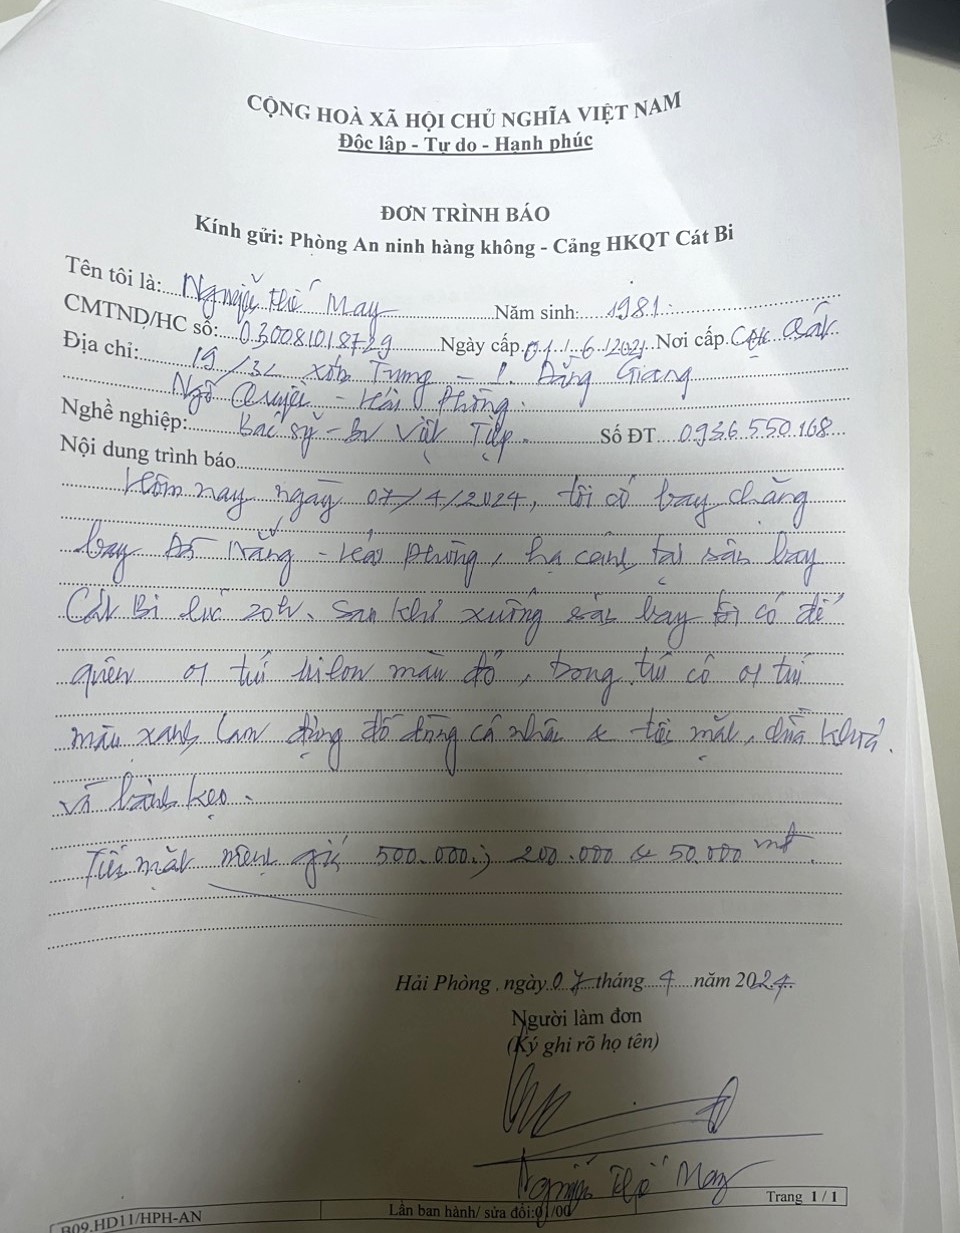 CỘNG HOÀ XÃ HỘI CHỦ NGHĨA VIỆT NAM
Độc lập - Tự do - Hạnh phúc
ĐƠN TRÌNH BÁO
Kính gửi: Phòng An ninh hàng không - Cảng HKQT Cát Bi
Tên tôi là: Nguyễn Thế May Năm sinh: 1981
CMTND/HC số: 030081018729 Ngày cấp 01/6/2021 Nơi cấp Cục
Địa chỉ: 19/32 xóm Trung - Đằng Giang
Ngô Quyền - Hải Phòng.
Nghề nghiệp: Bác sỹ - BV Việt Tiệp. Số ĐT 0936.550.168
Nội dung trình báo
Hôm nay ngày 07/4/2024, tôi có bay chặng
bay Đà Nẵng - Hải Phòng, hạ cánh tại sân bay
Cát Bi lúc 20h. Sau khi xuống sân bay tôi có để
quên 01 túi nilon màu đỏ, trong túi có 01 túi
màu xanh lam đựng đồ dùng cá nhân & tiền mặt,
và bánh kẹo.
Tiền mặt mệnh giá 500.000; 200.000 & 50.000 vnđ.
Hải Phòng, ngày 07 tháng 4 năm 2024
Người làm đơn
(Ký ghi rõ họ tên)
Nguyễn Thế May
B09.HD11/HPH-AN Lần ban hành/ sửa đổi:01/00 Trang 1 / 1